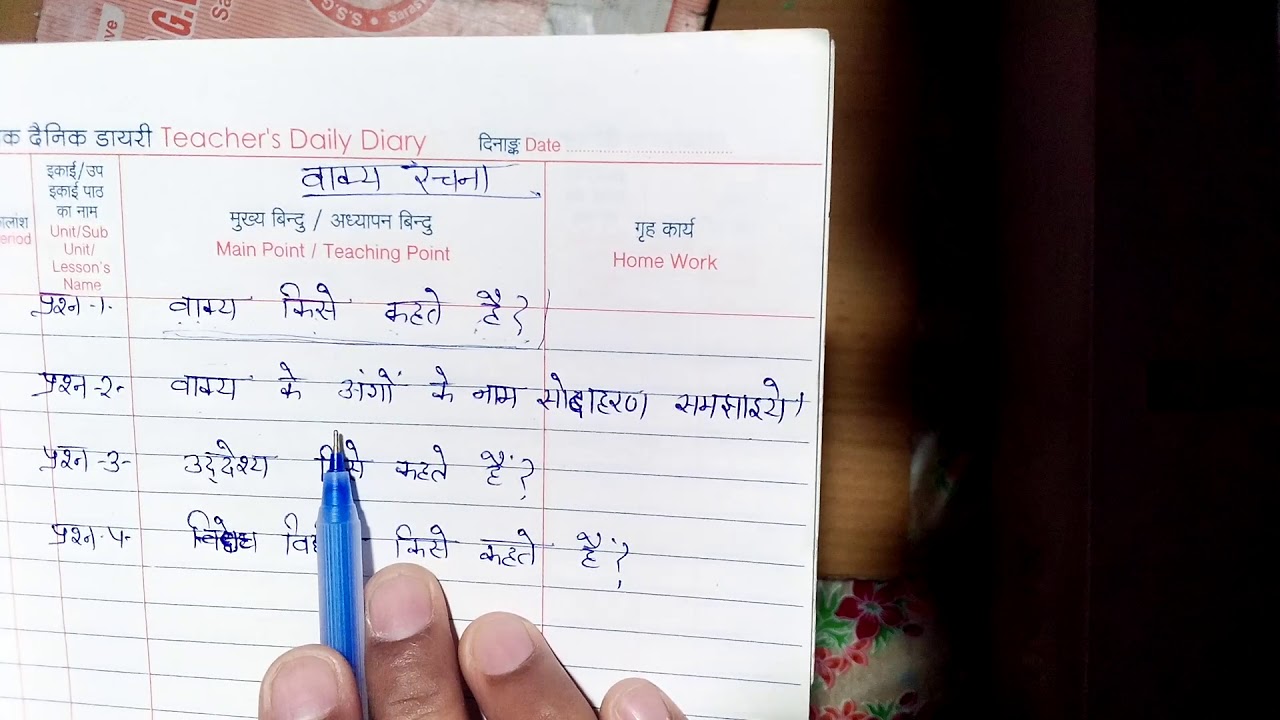 G.
S.S.G.
Saras
Sa
क दैनिक डायरी Teacher's Daily Diary
दिनाङ्क Date
वाक्य रचना
कालांश
eriod
इकाई/उप
इकाई पाठ
का नाम
Unit/Sub
Unit/
Lesson's
Name
मुख्य बिन्दु / अध्यापन बिन्दु
Main Point / Teaching Point
गृह कार्य
Home Work
प्रश्न-1- वाक्य किसे कहते है?
प्रश्न-2- वाक्य के अंगों के नाम सोदाहरण समझाइये।
प्रश्न-3- उद्देश्य किसे कहते हैं?
प्रश्न-4- किसे कहते हैं?